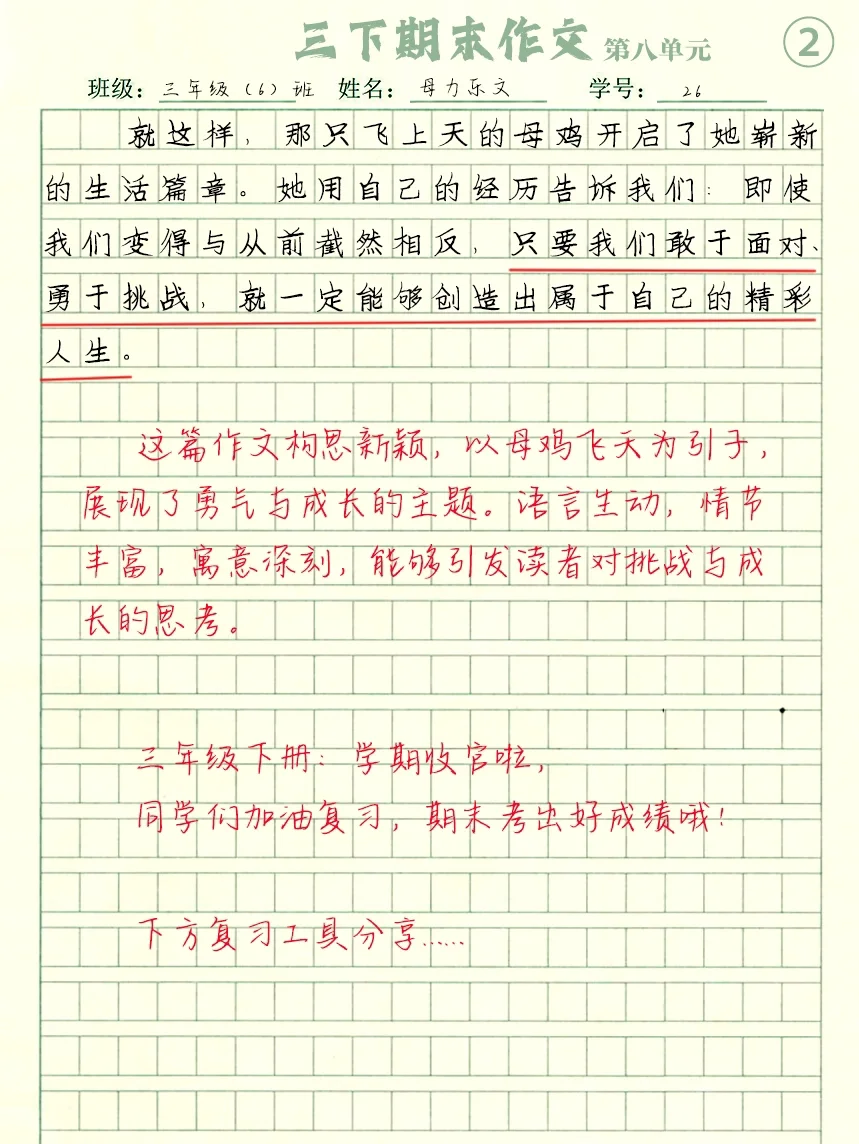 三下期末作文 第八单元 ②
班级：三年级（6）班 姓名：母力乐文 学号：26
就这样，那只飞上天的母鸡开启了她崭新
的生活篇章。她用自己的经历告诉我们：即使
我们变得与从前截然相反，只要我们敢于面对、
勇于挑战，就一定能够创造出属于自己的精彩
人生。
这篇作文构思新颖，以母鸡飞天为引子，
展现了勇气与成长的主题。语言生动，情节
丰富，寓意深刻，能够引发读者对挑战与成
长的思考。
三年级下册：学期收官啦，
同学们加油复习，期末考出好成绩哦！
下方复习工具分享……